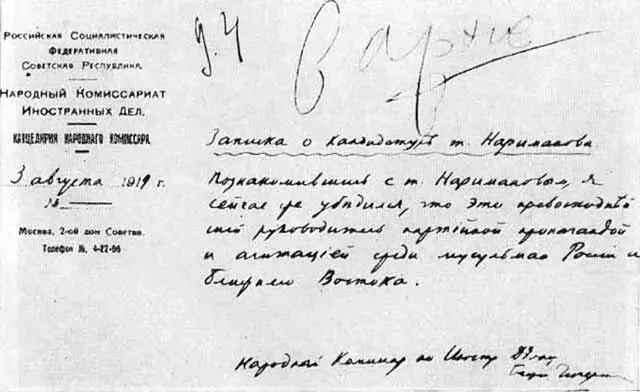 Российская Социалистическая
Федеративная
Советская Республика.
Народный Комиссариат
Иностранных Дел.
Канцелярия Народного Комиссара.
3 августа 1919 г.
№
Москва, 2-ой дом Советов.
Телефон № 4-22-96
д. 4
В архив
Записка о кандидатуре т. Нариманова
Познакомившись с т. Наримановым, я
сейчас же убедился, что это превосходней
ший руководитель партийной пропагандой
и агитацией среди мусульман России и
ближнего Востока.
Народный Комиссар по Иностр Делам